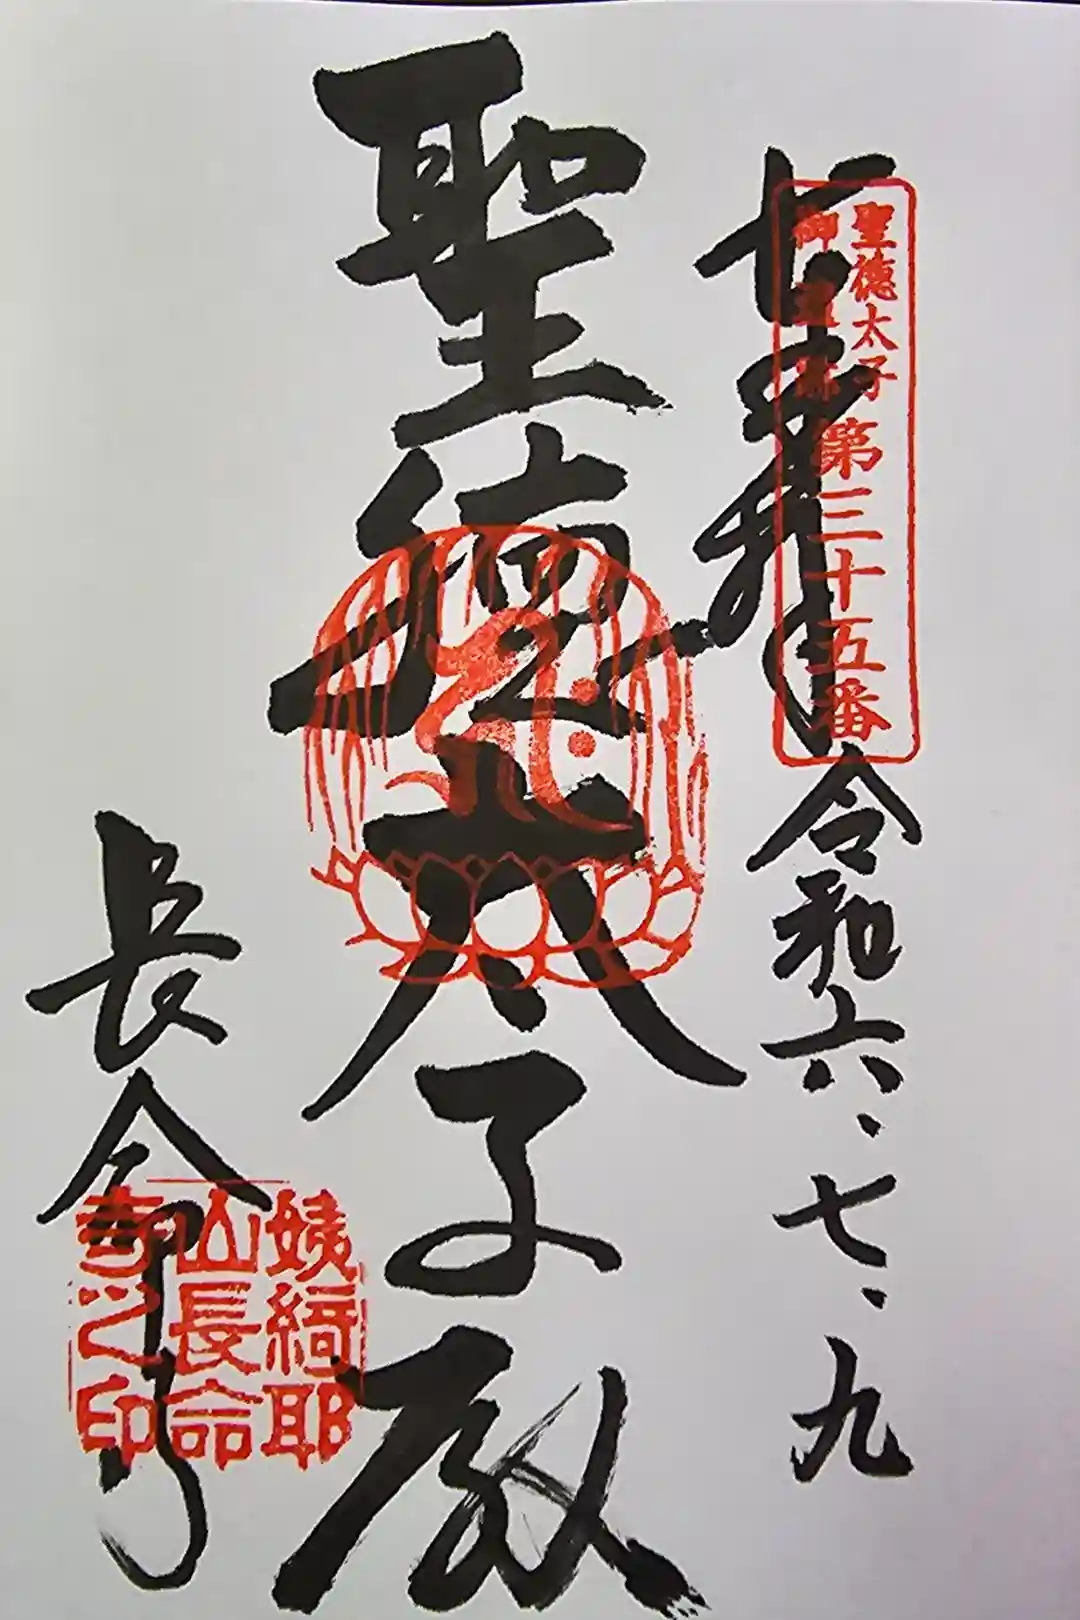 奉拝
令和六、七、九
聖徳太子
御遺跡
第三十五番
聖徳太子殿
長命寺
姨綺耶
山長命
寺之印